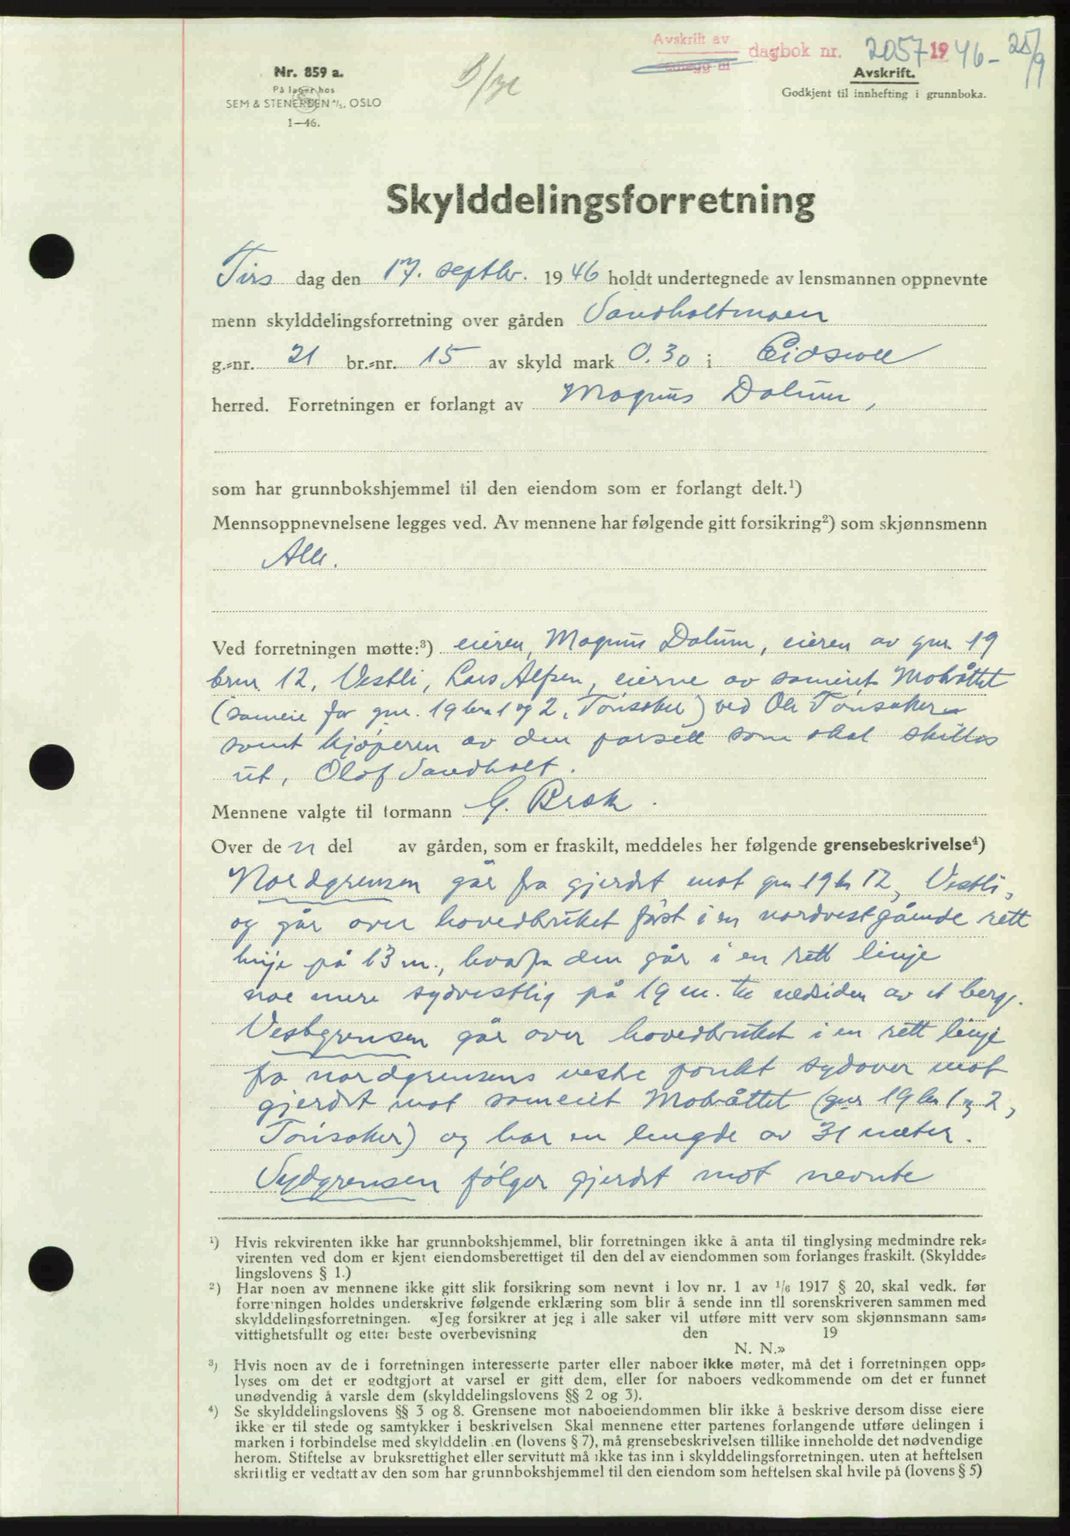 Avskrift av
dagbok nr. 2057 1946 - 25/9
Nr. 859 a.
På lager hos
SEM & STENERSEN A/S. OSLO
1—46.
Avskrift.
Godkjent til innhefting i grunnboka.
Skylddelingsforretning
Tirs dag den 17. septbr. 1946 holdt undertegnede av lensmannen oppnevnte
menn skylddelingsforretning over gården Sandholtmoen
g.=nr. 21 br.=nr. 15 av skyld mark 0.30 i Eidsvoll
herred. Forretningen er forlangt av Magnus Dalum,
som har grunnbokshjemmel til den eiendom som er forlangt delt.¹)
Mennsoppnevnelsene legges ved. Av mennene har følgende gitt forsikring²) som skjønnsmenn
Alle.
Ved forretningen møtte:³) eieren, Magnus Dalum, eieren av gnr. 19
brnr 12, Vestli, Lars Alfsen, eierne av sameiet Mobråttet
(sameie for gnr. 19 brn 1 og 2, Tønsaker) ved Ole Tønsaker
samt kjøperen av den parsell som skal skilles
ut, Olof Sandholt.
Mennene valgte til formann G. Brak.
Over de n del av gården, som er fraskilt, meddeles her følgende grensebeskrivelse⁴)
Nordgrensen går fra gjerdet mot gnr 19 br 12, Vestli,
og går over hovedbruket først i en nordvestgående rett
linje på 13 m., hvorfra den går i en rett linje
noe mere sydvestlig på 19 m. til nedsiden av et berg.
Vestgrensen går over hovedbruket i en rett linje
fra nordgrensens vestre punkt sydover mot
gjerdet mot sameiet Mobråttet (gnr 19 br 1 og 2,
Tønsaker) og har en lengde av 31 meter.
Sydgrensen følger gjerdet mot nevnte
¹) Hvis rekvirenten ikke har grunnbokshjemmel, blir forretningen ikke å anta til tinglysing medmindre rek=
virenten ved dom er kjent eiendomsberettiget til den del av eiendommen som forlanges fraskilt. (Skyldde=
lingslovens § 1.)
²) Har noen av mennene ikke gitt slik forsikring som nevnt i lov nr. 1 av 1/6 1917 § 20, skal vedk. før
forretningen holdes underskrive følgende erklæring som blir å sende inn til sorenskriveren sammen med
skylddelingsforretningen. «Jeg forsikrer at jeg i alle saker vil utføre mitt verv som skjønnsmann sam=
vittighetsfullt og etter beste overbevisning den 19
N. N.»
³) Hvis noen av de i forretningen interesserte parter eller naboer ikke møter, må det i forretningen opp=
lyses om det er godtgjort at varsel er gitt dem, eller for naboers vedkommende om det er funnet
unødvendig å varsle dem (skylddelingslovens §§ 2 og 3).
⁴) Se skylddelingslovens §§ 3 og 8. Grensene mot naboeiendommen blir ikke å beskrive dersom disse eiere
ikke er til stede og samtykker i beskrivelsen Skal mennene etter partenes forlangende utføre delingen i
marken i forbindelse med skylddelingen (lovens § 7), må grensebeskrivelsen tillike inneholde det nødvendige
herom. Stiftelse av bruksrettighet eller servitutt må ikke tas inn i skylddelingsforretningen. uten at heftelsen
skriftlig er vedtatt av den som har grunnbokshjemmel til den eiendom som heftelsen skal hvile på (lovens § 5)